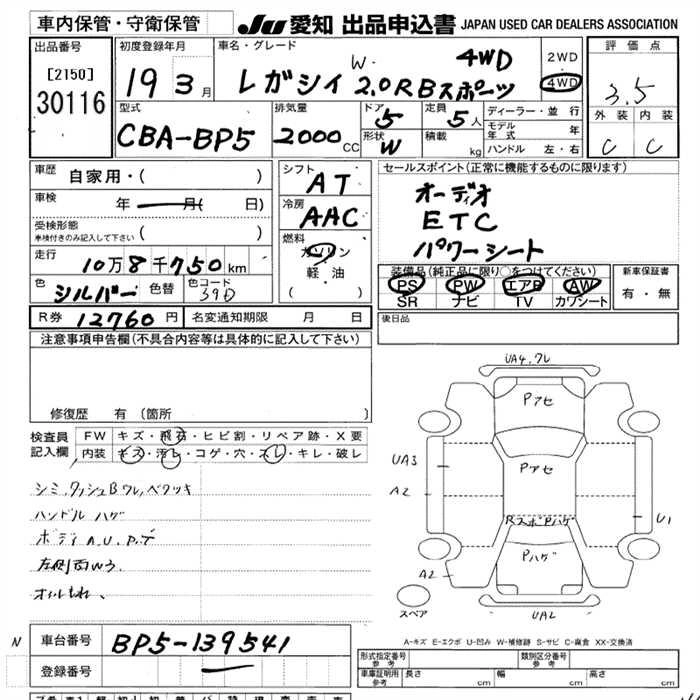 車内保管・守衛保管
JU 愛知 出品申込書 JAPAN USED CAR DEALERS ASSOCIATION
出品番号
[2150]
30116
初度登録年月
19 3月
車名・グレード
レガシイ W. 2.0R Bスポーツ 4WD
2WD
4WD
評価点
3.5
外装 内装
C C
型式
CBA-BP5
排気量
2000 CC
ドア 5
形状 W
定員 5人
積載 kg
ディーラー・並行
モデル年式 年
ハンドル 左・右
車歴 自家用・( )
車検 年 月( 日)
受検形態
車検付きのみ記入して下さい ( )
走行 10万8千750km
色 シルバー 色替
色コード 39D
R券 12760円
名変通知期限 月 日
シフト
AT
冷房
AAC
燃料
ガソリン
軽油
( )
セールスポイント(正常に機能するものに限ります)
オーディオ
ETC
パワーシート
装備品(純正品に限り○をつけてください)
PS PW エアB AW
SR ナビ TV カワシート
新車保証書
有・無
後日品
注意事項申告欄(不具合内容等は具体的に記入して下さい)
修復歴 有 (箇所 )
検査員記入欄
FW キズ・飛石・ヒビ割・リペア跡・X要
内装 キズ・汚レ・コゲ・穴・スレ・キレ・破レ
シミ,ダッシュBワレ,ベタツキ
ハンドル ハゲ
ボディA.U.P.デ
左側面Wウ
オイルもれ、
UA4,ワレ
Pアセ
Pアセ
RスポPハゲ
Pハゲ
UA3
A2
A2
U1
UA2
スペア
A-キズ E-エクボ U-凹み W-補修跡 S-サビ C-腐食 XX-交換済
N
車台番号 BP5-139541
登録番号
形式指定番号 参考
類別区分番号 参考
車庫証明用 参考
長さ cm
幅 cm
高さ cm